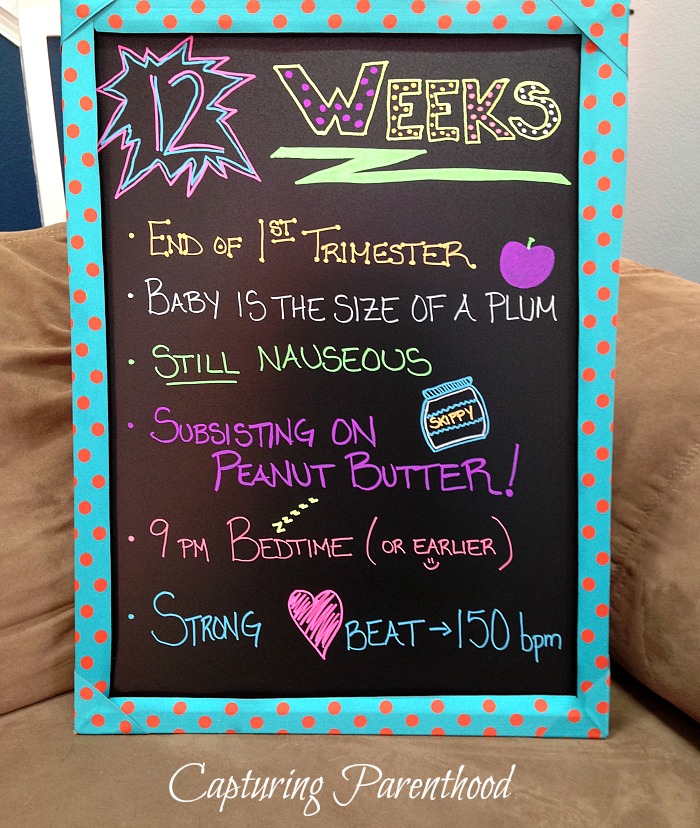 12 WEEKS
• END OF 1ST TRIMESTER
• BABY IS THE SIZE OF A PLUM
• STILL NAUSEOUS
• SUBSISTING ON
SKIPPY
PEANUT BUTTER!
zzzzz
• 9 PM BEDTIME (OR EARLIER)
• STRONG BEAT → 150 bpm
Capturing Parenthood